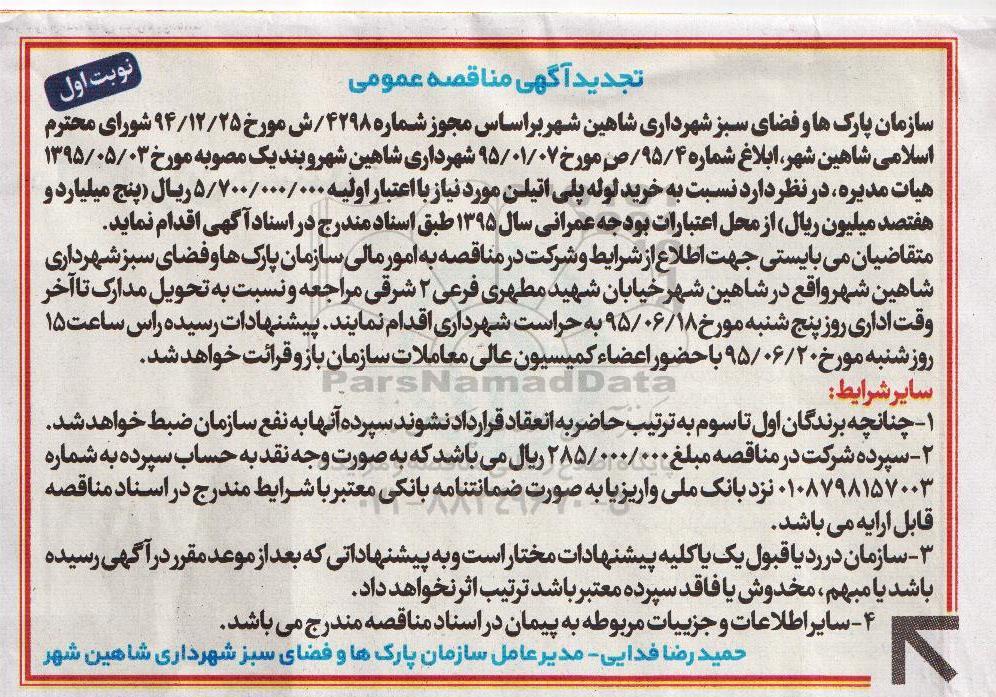 تجدید آگهی مناقصه عمومی
نوبت اول
سازمان پارک ها و فضای سبز شهرداری شاهین شهر براساس مجوز شماره ۴۲۹۸/ش مورخ ۹۴/۱۲/۲۵ شورای محترم
اسلامی شاهین شهر، ابلاغ شماره ۹۵/۴/ص مورخ ۹۵/۰۱/۰۷ شهرداری شاهین شهر و بند یک مصوبه مورخ ۱۳۹۵/۰۵/۰۳
هیات مدیره، در نظر دارد نسبت به خرید لوله پلی اتیلن مورد نیاز با اعتبار اولیه ۵/۷۰۰/۰۰۰/۰۰۰ ریال (پنج میلیارد و
هفتصد میلیون ریال) از محل اعتبارات بودجه عمرانی سال ۱۳۹۵ طبق اسناد مندرج در اسناد آگهی اقدام نماید.
متقاضیان می بایستی جهت اطلاع از شرایط و شرکت در مناقصه به امور مالی سازمان پارک ها و فضای سبز شهرداری
شاهین شهر واقع در شاهین شهر خیابان شهید مطهری فرعی ۲ شرقی مراجعه و نسبت به تحویل مدارک تا آخر
وقت اداری روز پنج شنبه مورخ ۹۵/۰۶/۱۸ به حراست شهرداری اقدام نمایند. پیشنهادات رسیده راس ساعت ۱۵
روز شنبه مورخ ۹۵/۰۶/۲۰ با حضور اعضاء کمیسیون عالی معاملات سازمان باز و قرائت خواهد شد.
ParsNamadData
سایر شرایط:
۱-چنانچه برندگان اول تا سوم به ترتیب حاضر به انعقاد قرارداد نشوند سپرده آنها به نفع سازمان ضبط خواهد شد.
۲-سپرده شرکت در مناقصه مبلغ ۲۸۵/۰۰۰/۰۰۰ ریال می باشد که به صورت وجه نقد به حساب سپرده به شماره
۰۱۰۸۷۹۸۱۵۷۰۰۳ نزد بانک ملی واریز یا به صورت ضمانتنامه بانکی معتبر با شرایط مندرج در اسناد مناقصه
قابل ارایه می باشد.
۳-سازمان در رد یا قبول یک یا کلیه پیشنهادات مختار است و به پیشنهاداتی که بعد از موعد مقرر در آگهی رسیده
باشد یا مبهم، مخدوش یا فاقد سپرده معتبر باشد ترتیب اثر نخواهد داد.
۴-سایر اطلاعات و جزییات مربوطه به پیمان در اسناد مناقصه مندرج می باشد.
حمید رضا فدایی- مدیر عامل سازمان پارک ها و فضای سبز شهرداری شاهین شهر